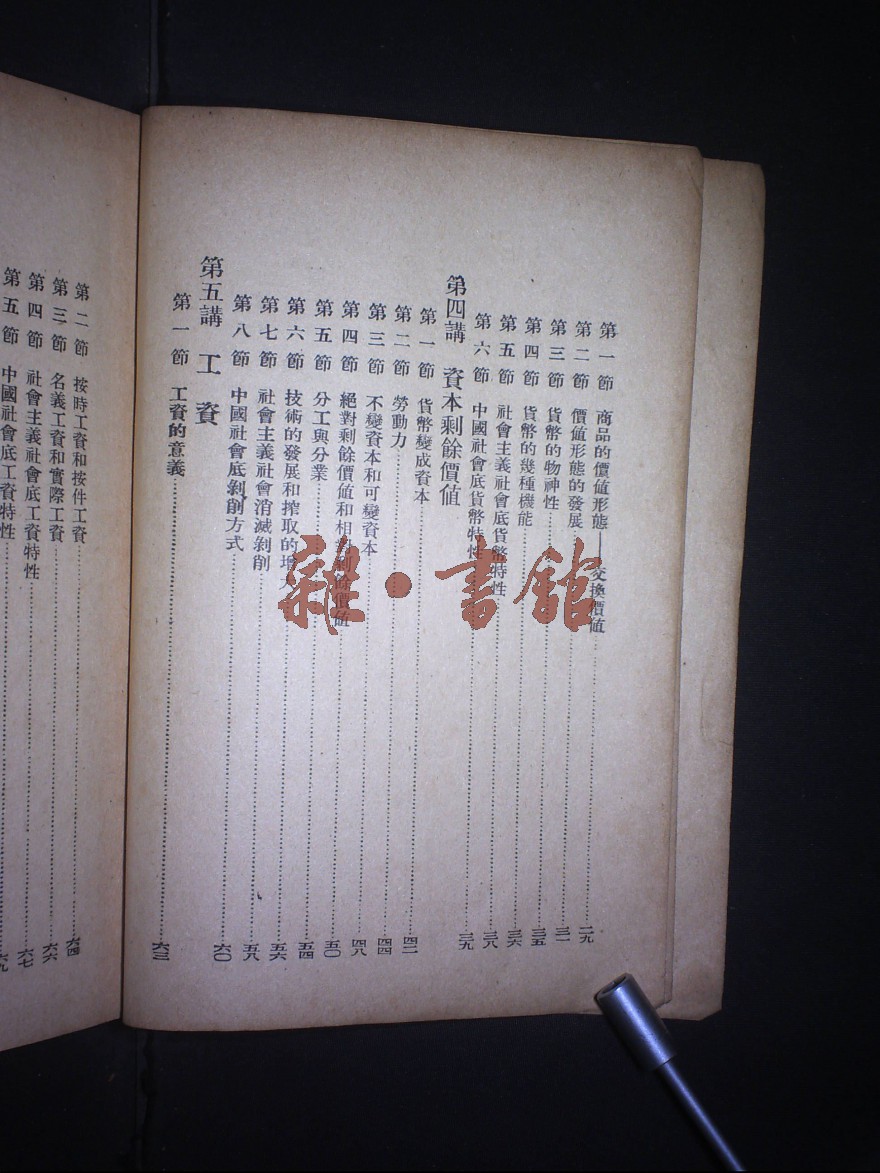 第一節 商品的價値形態——交換價値……二九
第二節 價値形態的發展……三一
第三節 貨幣的物神性……三五
第四節 貨幣的幾種機能……三六
第五節 社會主義社會底貨幣特性……三八
第六節 中國社會底貨幣特性……三九
第四講 資本剩餘價値
第一節 貨幣變成資本……四二
第二節 勞動力……四四
第三節 不變資本和可變資本……四八
第四節 絕對剩餘價値和相對剩餘價値……五〇
第五節 分工與分業……五四
第六節 技術的發展和搾取的增大……五六
第七節 社會主義社會消滅剝削……五八
第八節 中國社會底剝削方式……六〇
第五講 工資
第一節 工資的意義……六三
第二節 按時工資和按件工資……六四
第三節 名義工資和實際工資……六六
第四節 社會主義社會底工資特性……六七
第五節 中國社會底工資特性……六九
雜·書館